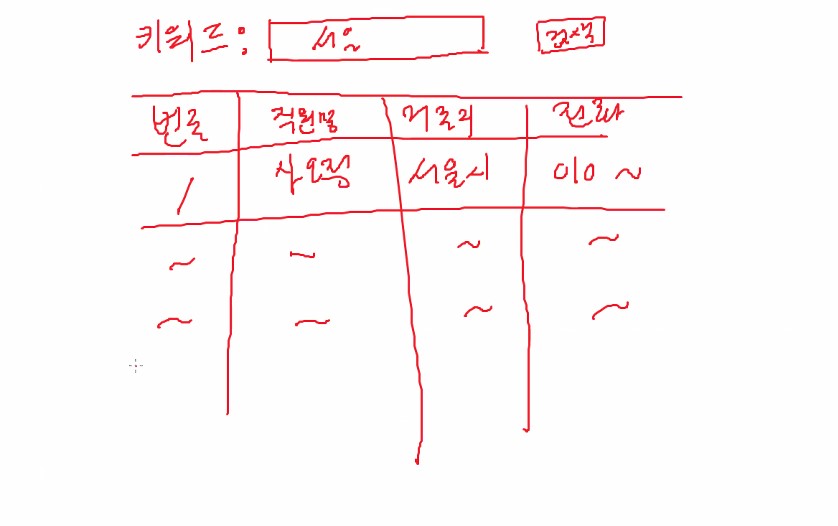 키워드: 서울 검색
번호 직원명 거주지 전화
1 사오정 서울시 010 ~
~ ~ ~ ~
~ ~ ~ ~